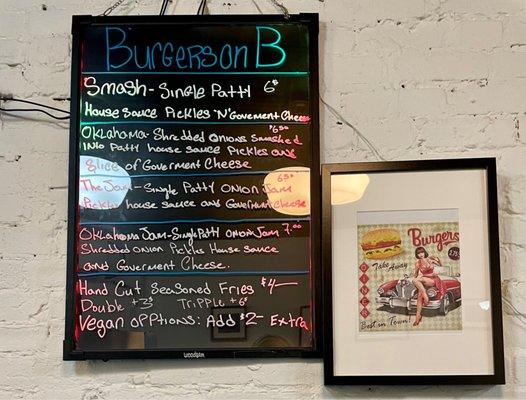 Burgers on B
Smash - Single Patty 6⁵⁰
House Sauce Pickles "N" Goverment Cheese
Oklahoma - Shredded Onions Smashed 6⁵⁰
INto Patty house sauce Pickles and
Slice of Goverment Cheese
The Jam - Single Patty Onion Jam 6⁵⁰
Pickles house sauce and Goverment Cheese
Oklahoma Jam - Single Patty onion Jam 7.⁰⁰
Shredded onion Pickles House sauce
and Goverment Cheese.
Hand Cut Seasoned Fries $4
Double +3⁵ Tripple +6⁵
Vegan options: Add $2 Extra
woodsam
Burgers
Take Away
DINER
Best in Town